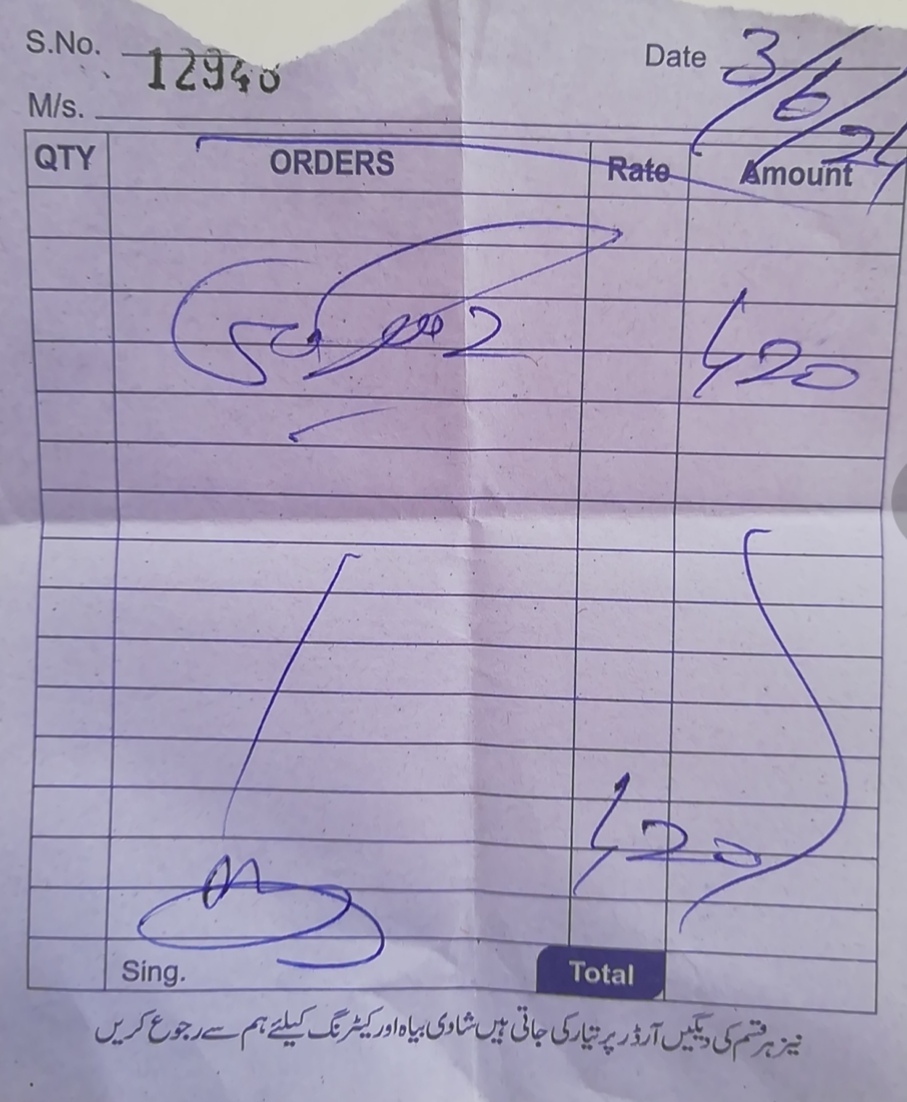 S.No. 12940
Date 3/6/24
M/s.
QTY ORDERS Rate Amount
2 420
420
Sing. Total
نیز ہر قسم کی دیگیں آرڈر پر تیار کی جاتی ہیں شادی بیاہ اور کیٹرنگ کیلئے ہم سے رجوع کریں